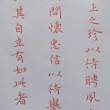 上之珍以待聘夙
問懷忠信以待舉
其自立有如此者